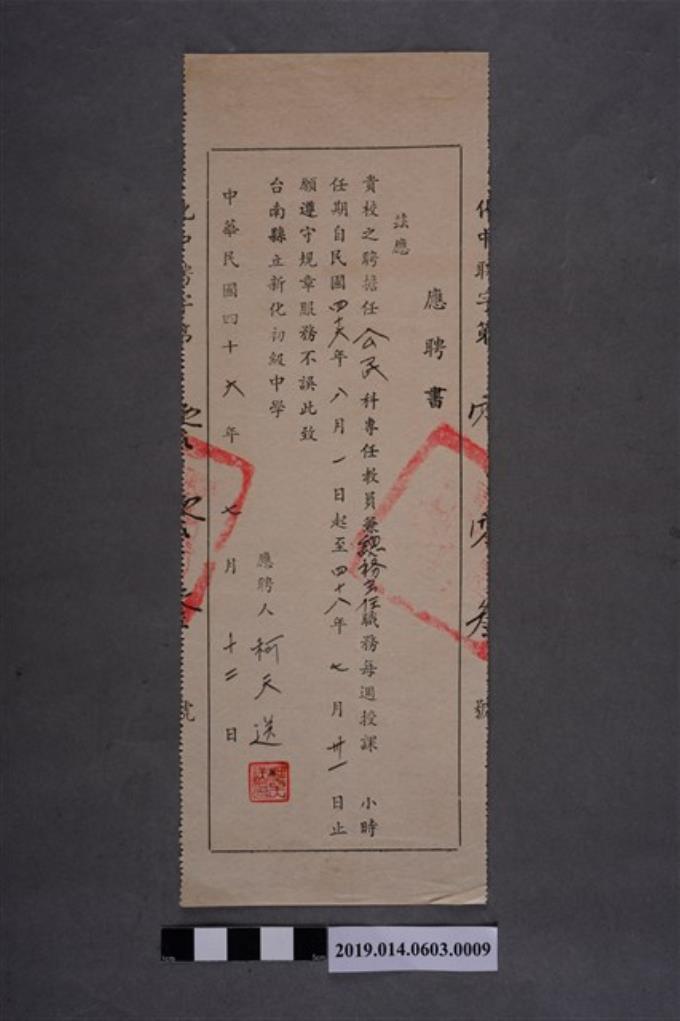 化中聘字第
號
應聘書
茲應
貴校之聘擔任公民科專任教員兼總務主任職務每週授課　小時
任期自民國四十六年八月一日起至四十八年七月卅一日止
願遵守規章服務不誤此致
台南縣立新化初級中學
應聘人柯天送
中華民國四十六年七月十二日
號
2019.014.0603.0009